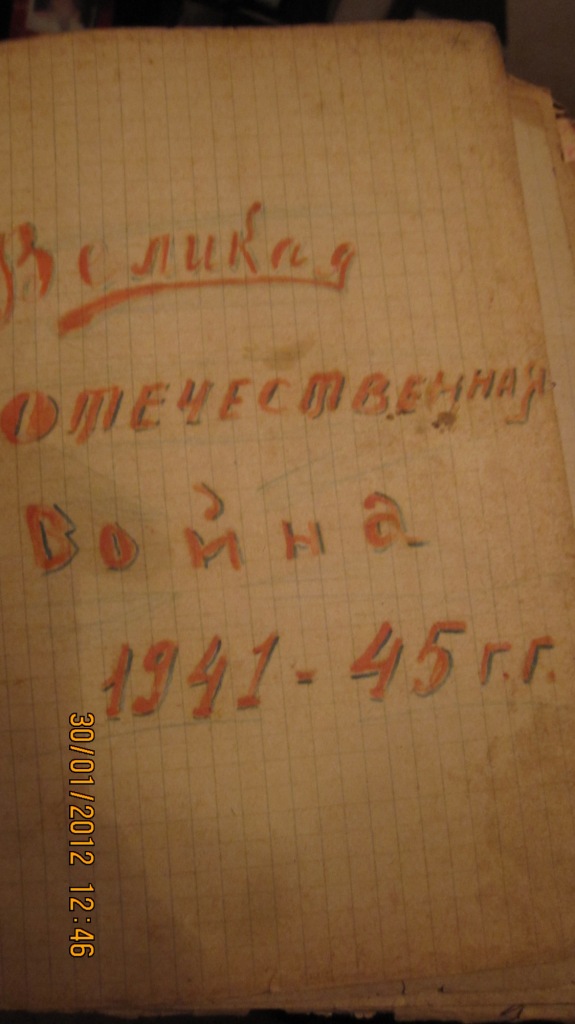 Великая
ОТЕЧЕСТВЕННАЯ
Война
1941-45 г.г.
30/01/2012 12:46